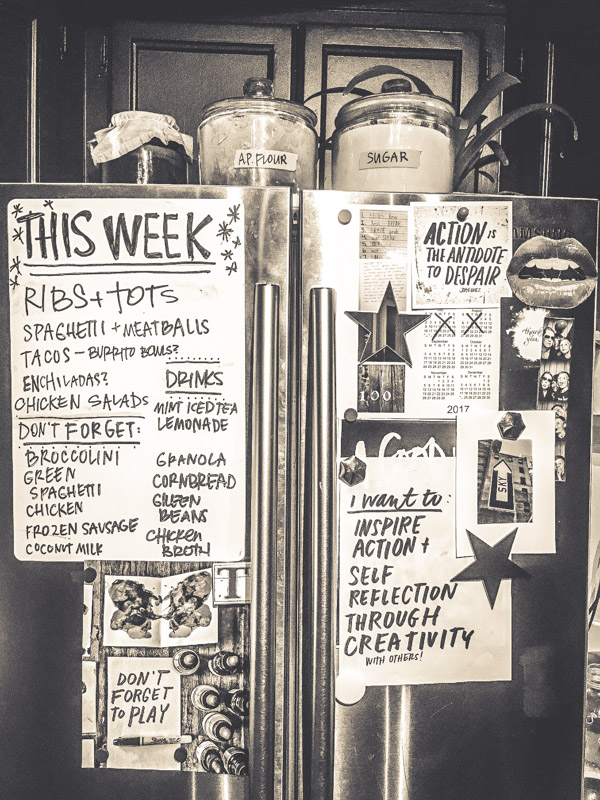 A.P. FLOUR
SUGAR
THIS WEEK
RIBS + TOTS
SPAGHETTI + MEATBALLS
TACOS - BURRITO BOWLS?
ENCHILADAS?
CHICKEN SALADS
DON'T FORGET:
BROCCOLINI
GREEN
SPAGHETTI
CHICKEN
FROZEN SAUSAGE
COCONUT MILK
DRINKS
MINT ICED TEA
LEMONADE
GRANOLA
CORNBREAD
GREEN
BEANS
CHICKEN
BROTH
T
DON'T
FORGET
to PLAY
ACTION is
THE ANTIDOTE
TO DESPAIR
thank
you
100
September
October
November
December
2017
SKY
I want to:
INSPIRE
ACTION +
SELF
REFLECTION
THROUGH
CREATIVITY
WITH OTHERS!